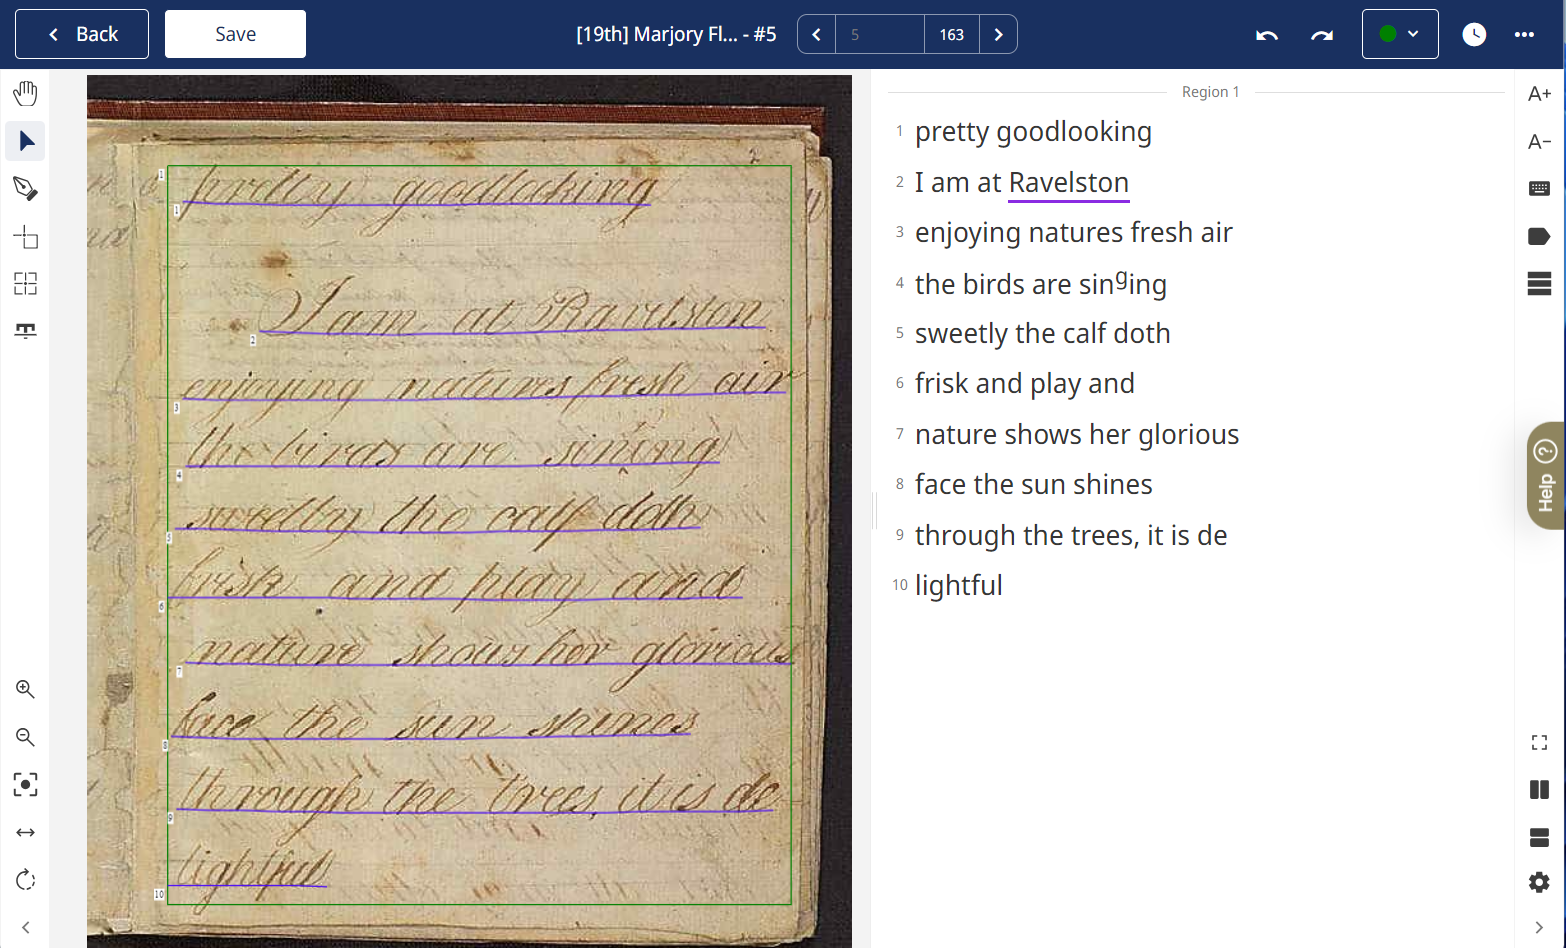 Back
Save
[19th] Marjory Fl... - #5
5
163
2
pretty goodlooking
I am at Ravelston
enjoying natures fresh air
the birds are singing
sweetly the calf doth
frisk and play and
nature shows her glorious
face the sun shines
through the trees, it is de
lightful
Region 1
1 pretty goodlooking
2 I am at Ravelston
3 enjoying natures fresh air
4 the birds are singing
5 sweetly the calf doth
6 frisk and play and
7 nature shows her glorious
8 face the sun shines
9 through the trees, it is de
10 lightful
A+
A-
Help